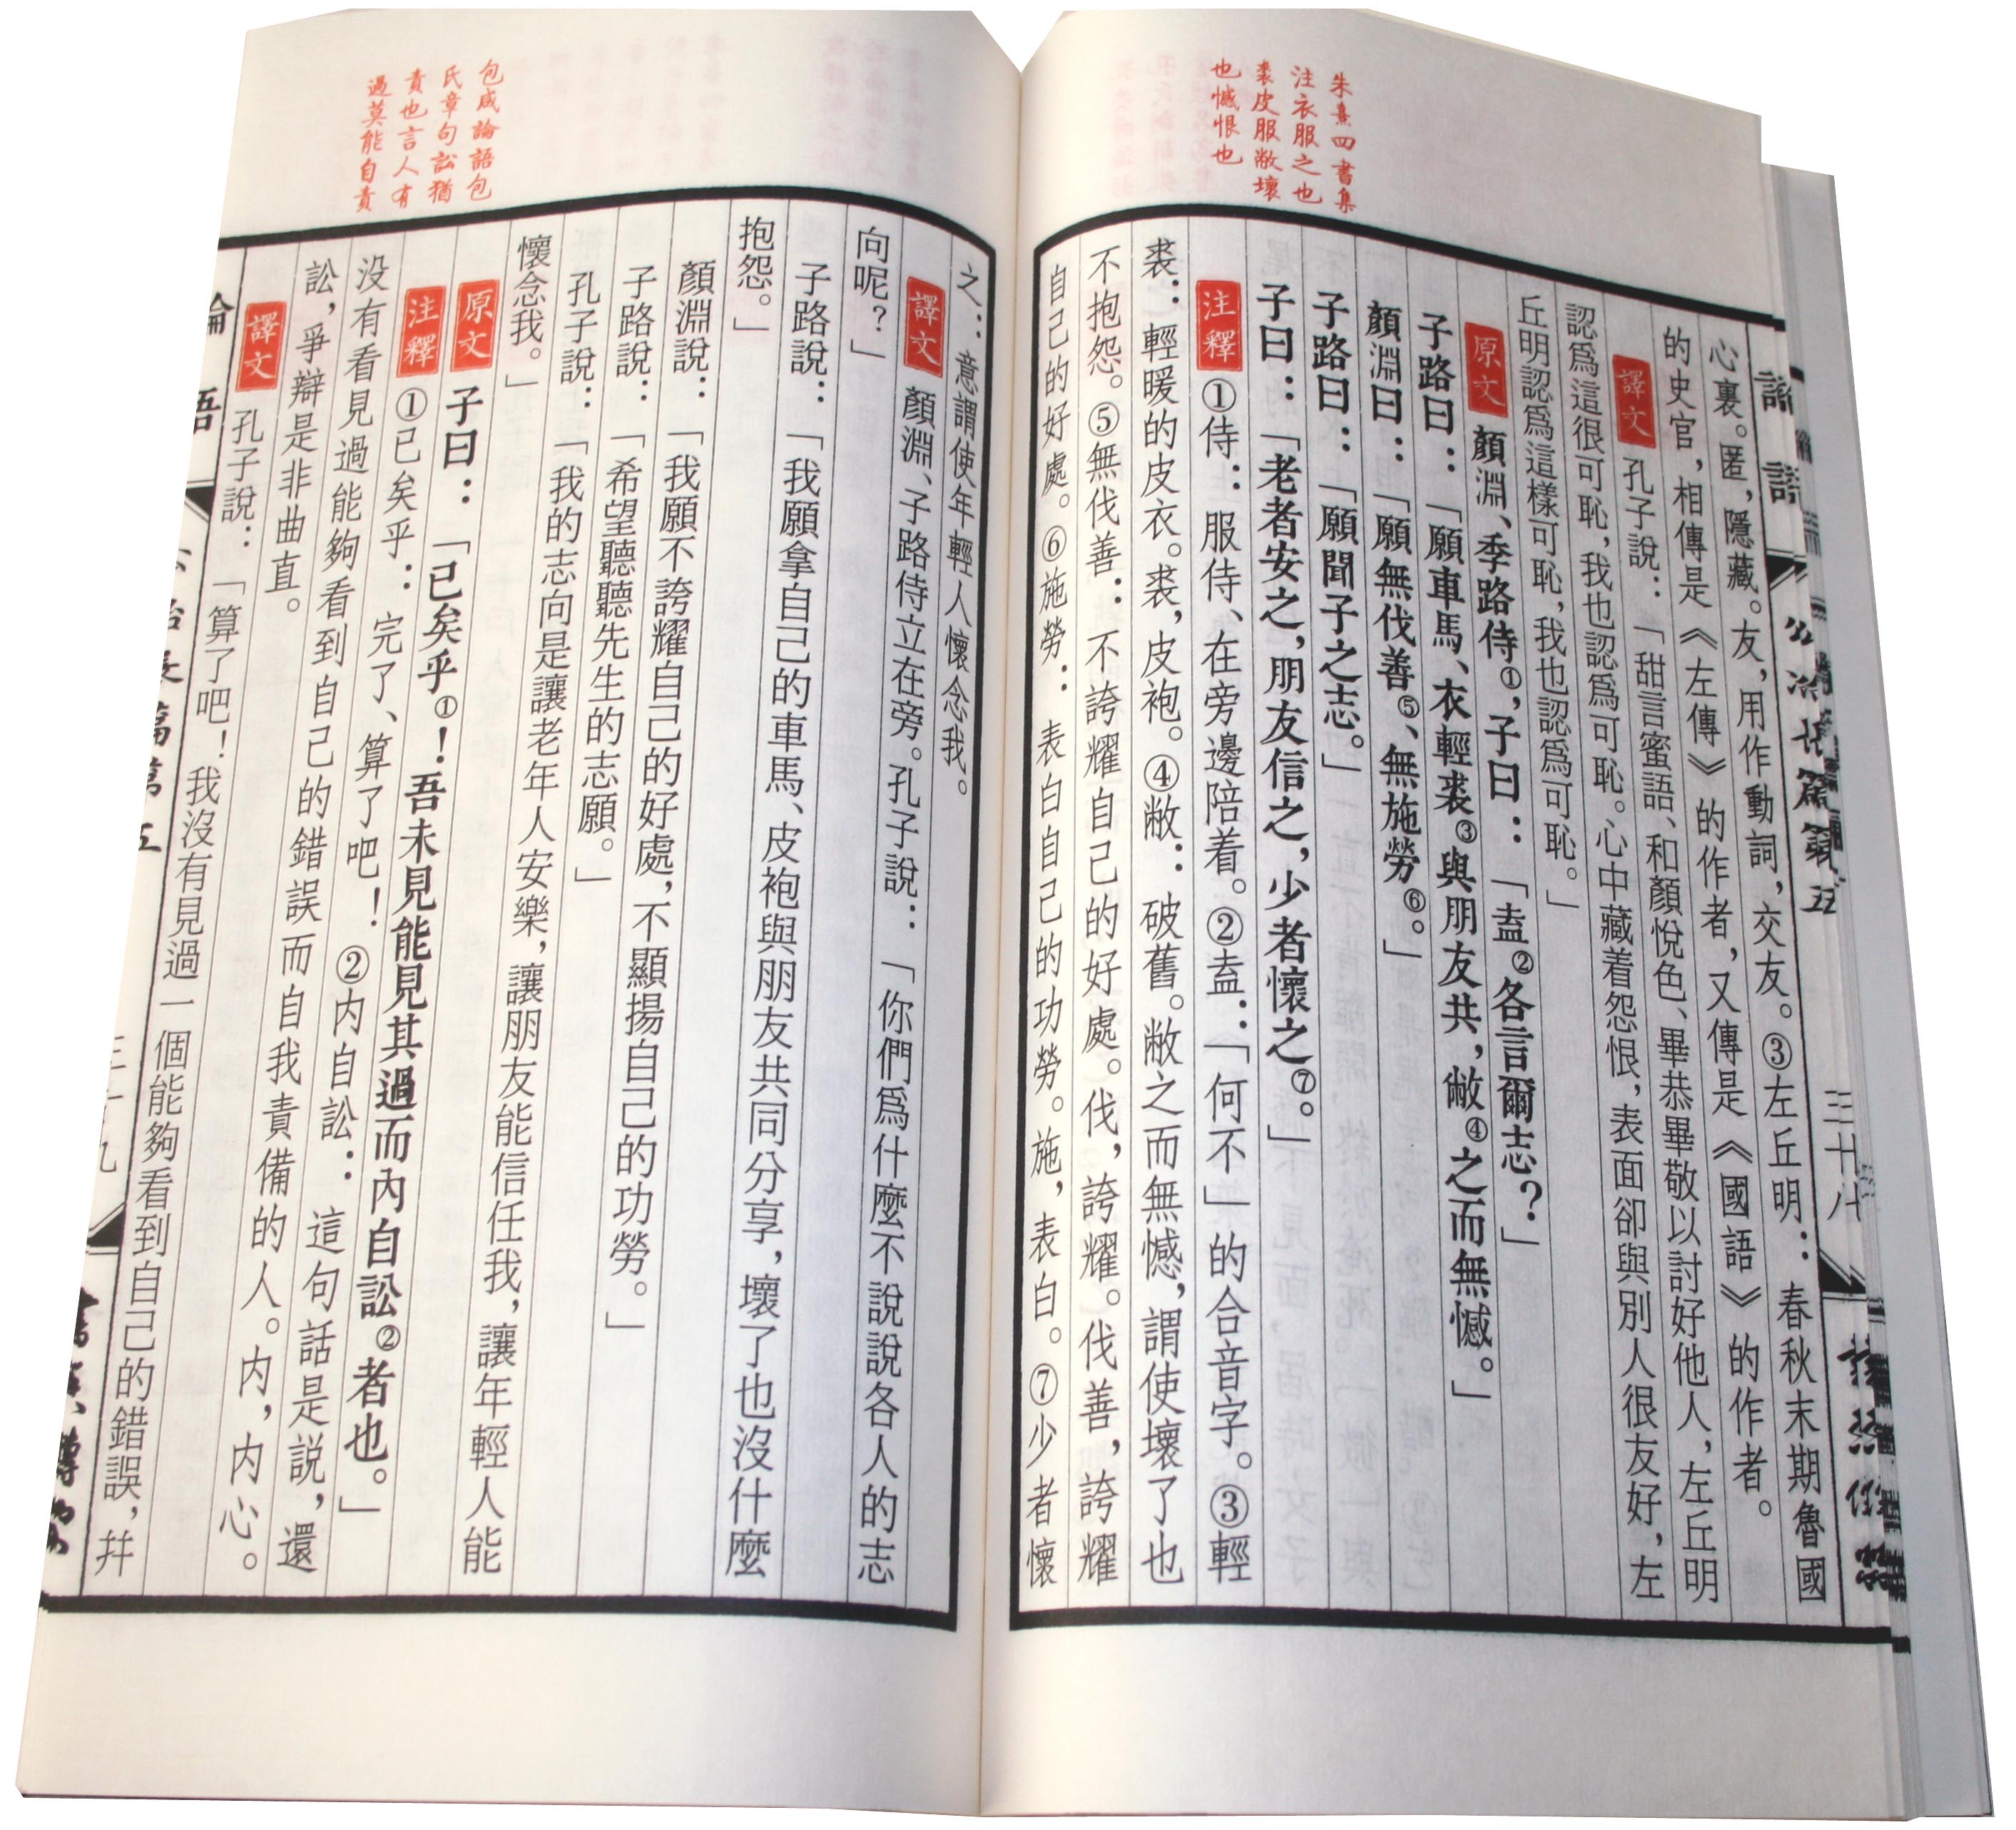 朱熹四書集
注衣服之也
裘皮服敝壞
也憾恨也
論語
公冶長篇第五
三十八
心裏。匿，隱藏。友，用作動詞，交友。③左丘明：春秋末期魯國
的史官，相傳是《左傳》的作者，又傳是《國語》的作者。
譯文 孔子說：「甜言蜜語、和顏悅色、畢恭畢敬以討好他人，左丘明
認爲這很可恥，我也認爲可恥。心中藏着怨恨，表面卻與別人很友好，左
丘明認爲這樣可恥，我也認爲可恥。」
原文 顏淵、季路侍①，子曰：「盍②各言爾志？」
子路曰：「願車馬、衣輕裘③與朋友共，敝④之而無憾。」
顏淵曰：「願無伐善⑤、無施勞⑥。」
子路曰：「願聞子之志。」
子曰：「老者安之，朋友信之，少者懷之⑦。」
注釋 ①侍：服侍、在旁邊陪着。②盍：「何不」的合音字。③輕
裘：輕暖的皮衣。裘，皮袍。④敝：破舊。敝之而無憾，謂使壞了也
不抱怨。⑤無伐善：不誇耀自己的好處。伐，誇耀。伐善，誇耀
自己的好處。⑥施勞：表白自己的功勞。施，表白。⑦少者懷
包咸論語包
氏章句訟猶
責也言人有
過莫能自責
之：意謂使年輕人懷念我。
譯文 顏淵、子路侍立在旁。孔子說：「你們爲什麼不說說各人的志
向呢？」
子路說：「我願拿自己的車馬、皮袍與朋友共同分享，壞了也沒什麼
抱怨。」
顏淵說：「我願不誇耀自己的好處，不顯揚自己的功勞。」
子路說：「希望聽聽先生的志願。」
孔子說：「我的志向是讓老年人安樂，讓朋友能信任我，讓年輕人能
懷念我。」
原文 子曰：「已矣乎①！吾未見能見其過而內自訟②者也。」
注釋 ①已矣乎：完了、算了吧！②内自訟：這句話是說，還
没有看見過能夠看到自己的錯誤而自我責備的人。内，内心。
訟，爭辯是非曲直。
譯文 孔子說：「算了吧！我沒有見過一個能夠看到自己的錯誤，并
論語
公冶長篇第五
三十九